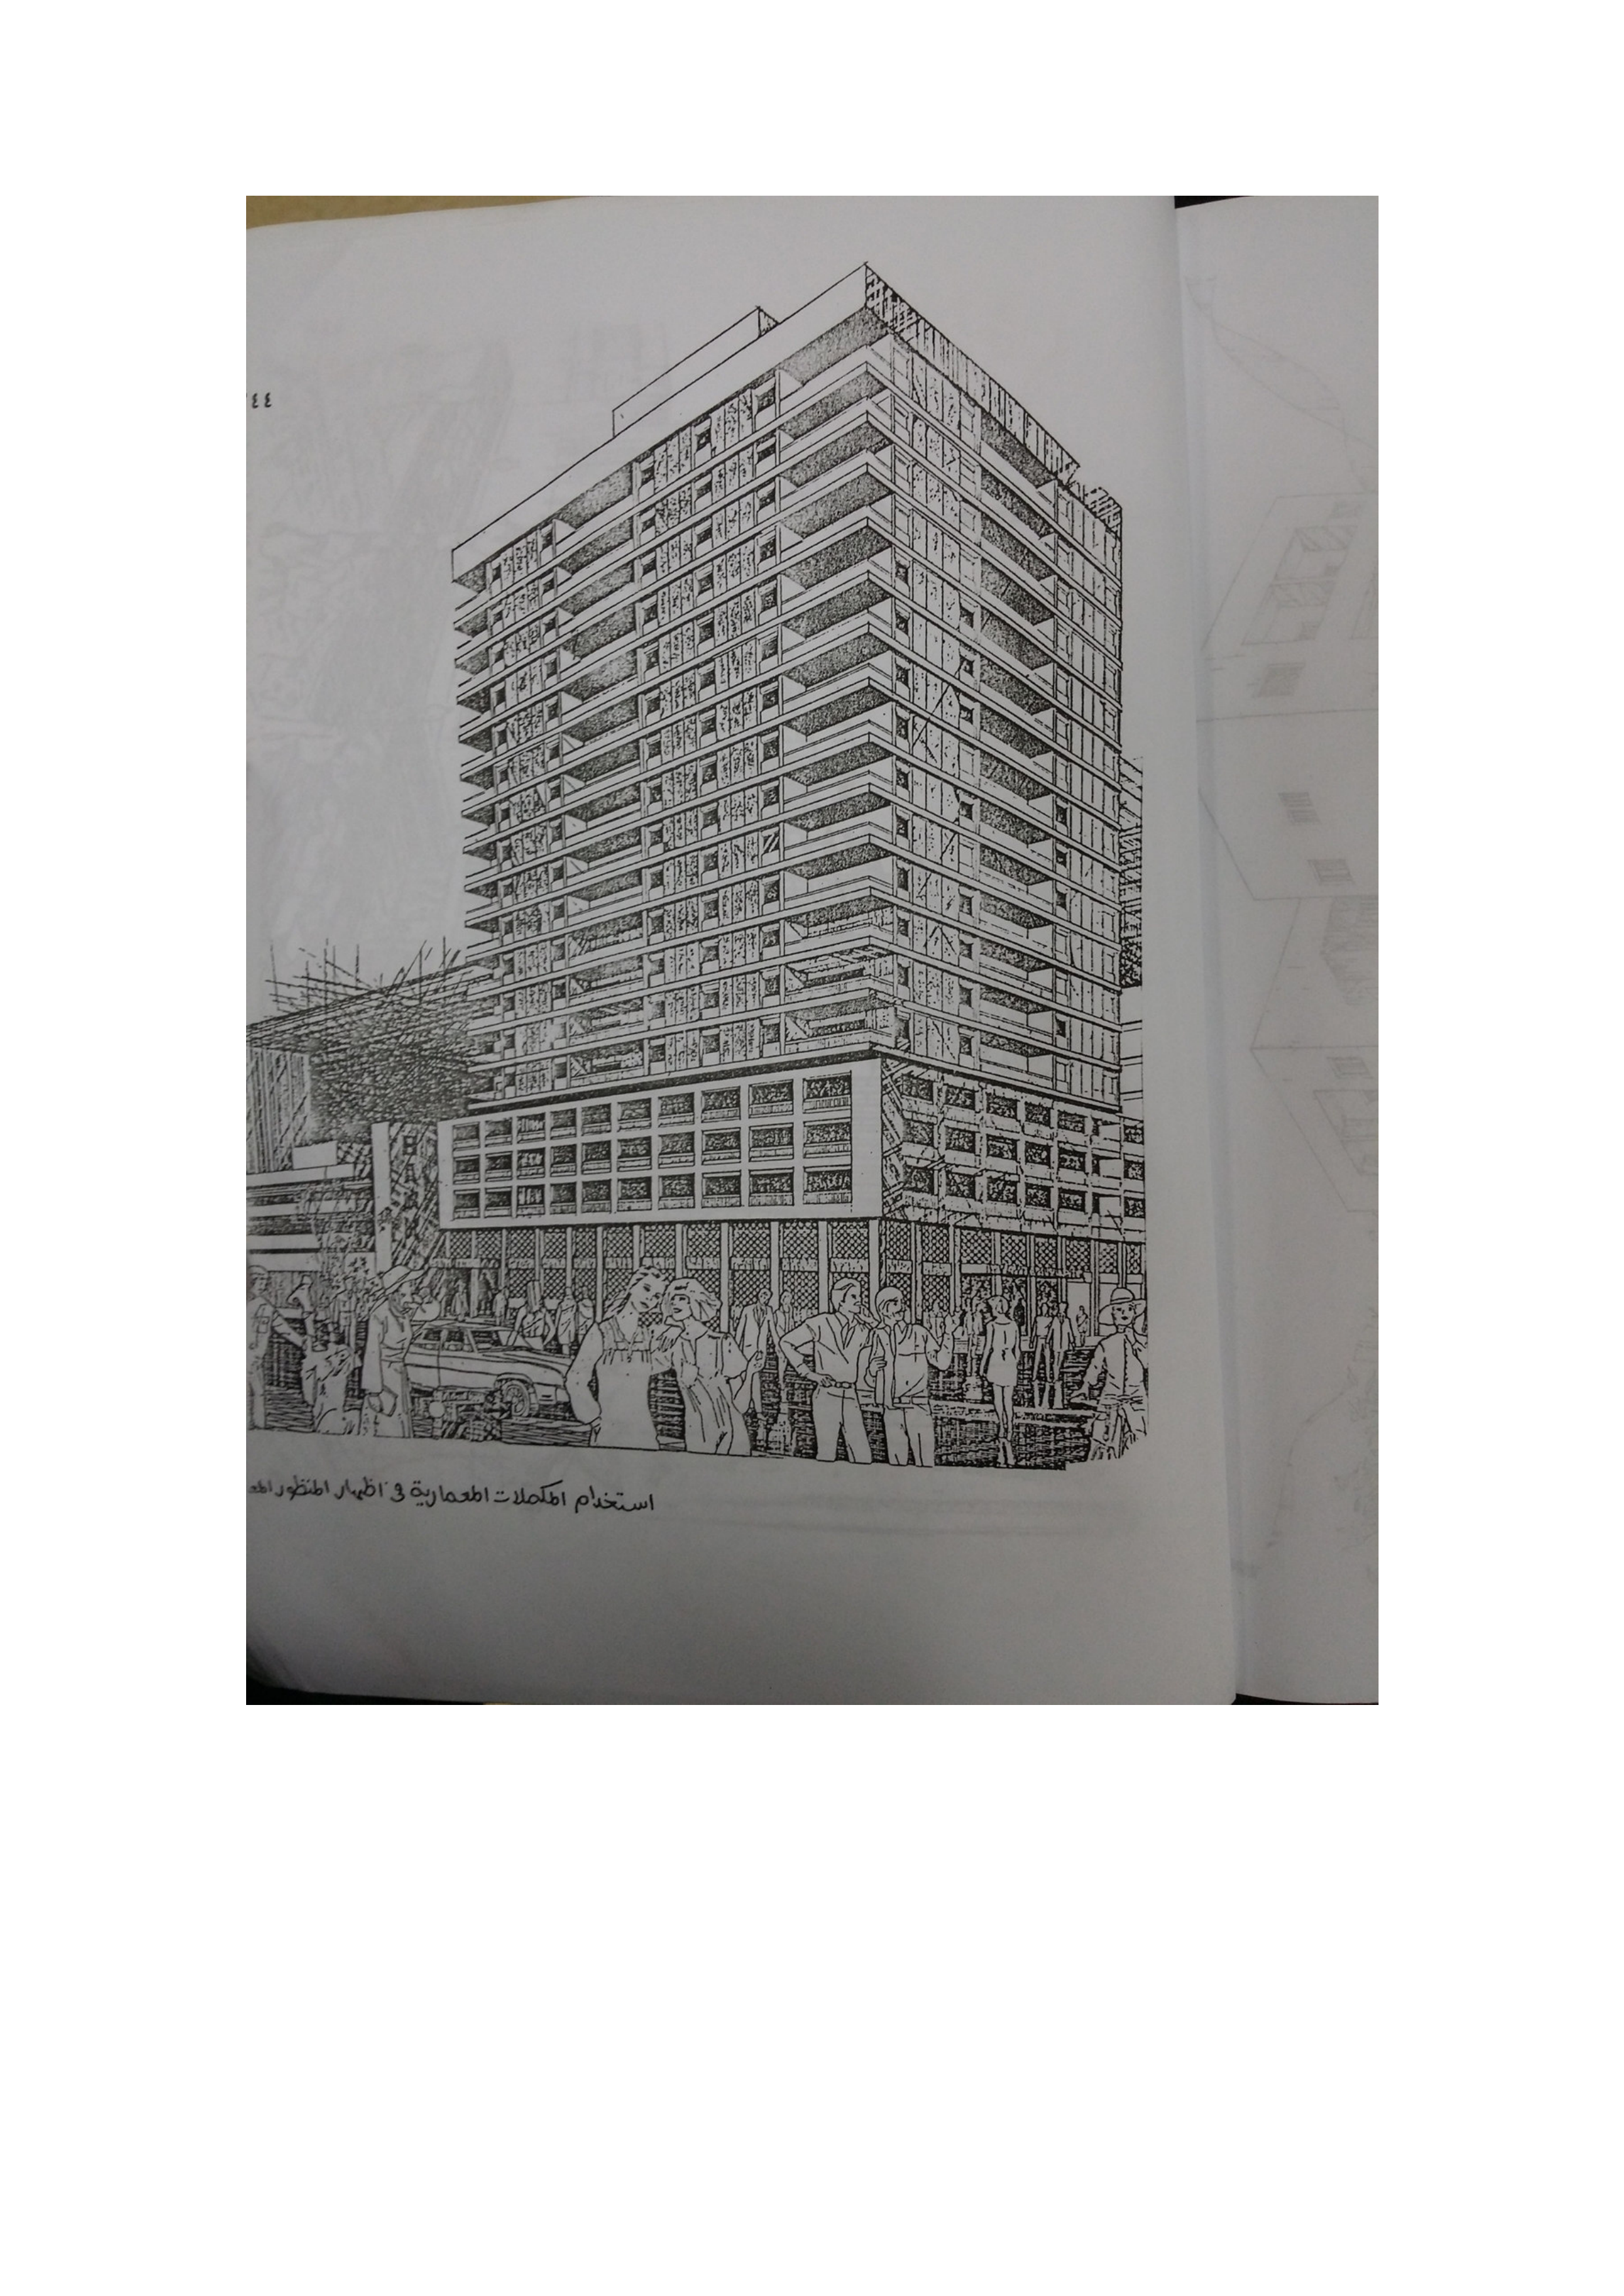 ٤٤
استخدام المكملات المعمارية في اظهار المنظور